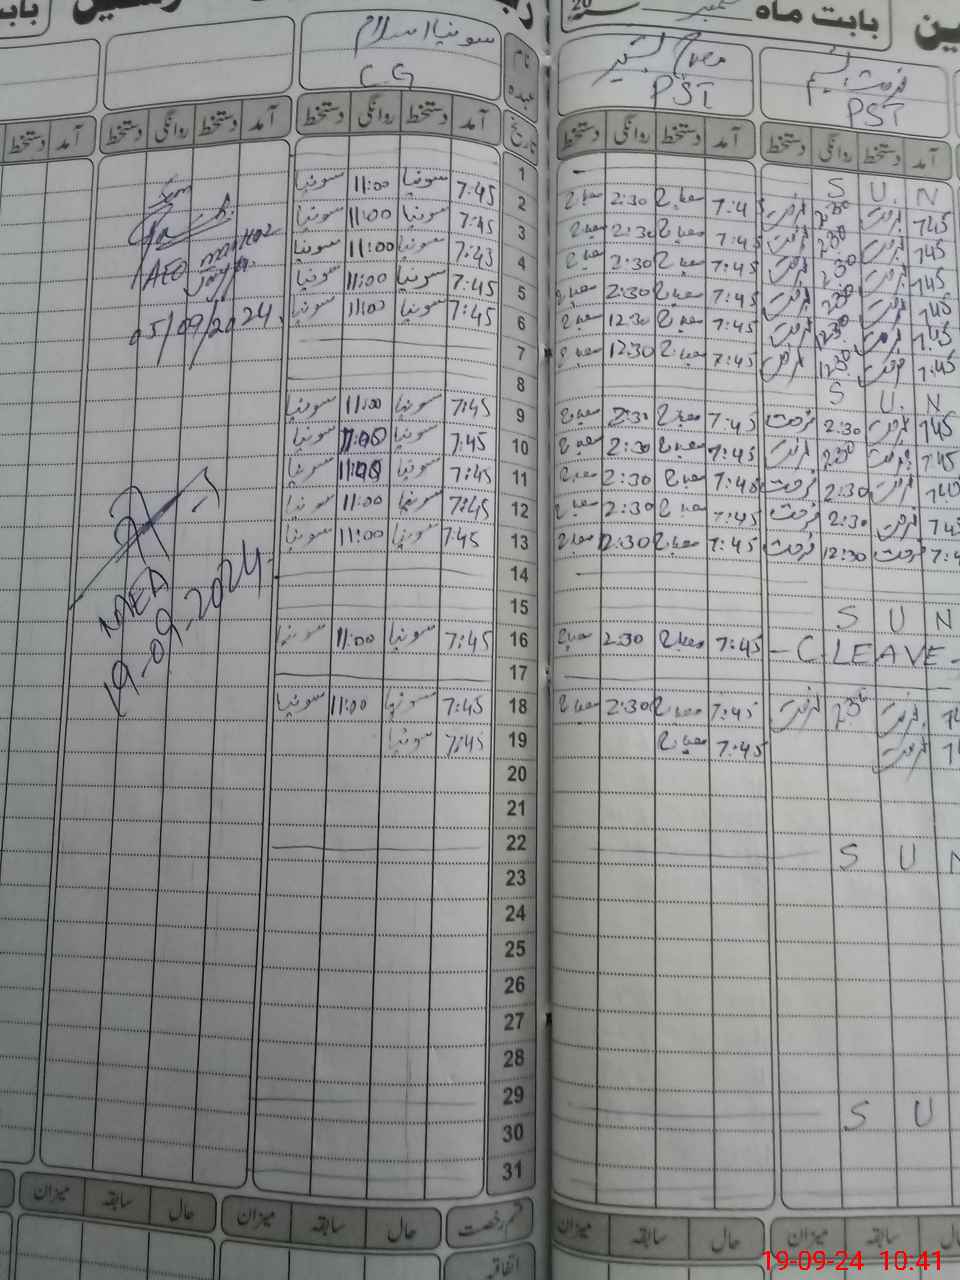 بابت ماہ ستمبر 20
سونیا اسلام
C G
PST
PST
نام
عہدہ
تاریخ
آمد دستخط روانگی دستخط
آمد دستخط روانگی دستخط
آمد دستخط روانگی دستخط
آمد دستخط روانگی دستخط
آمد دستخط
1 S U N
2 7:45 سونیا 11:00 سونیا 7:45 مصباح 2:30 مصباح 7:45 فرحت 2:30 فرحت
3 7:45 سونیا 11:00 سونیا 7:45 مصباح 2:30 مصباح 7:45 فرحت 2:30 فرحت
4 7:45 سونیا 11:00 سونیا 7:45 مصباح 2:30 مصباح 7:45 فرحت 2:30 فرحت
5 7:45 سونیا 11:00 سونیا 7:45 مصباح 2:30 مصباح 7:45 فرحت 2:30 فرحت
6 7:45 سونیا 11:00 سونیا 7:45 مصباح 12:30 مصباح 7:45 فرحت 12:30 فرحت
7 7:45 مصباح 12:30 مصباح 7:45 فرحت 12:30 فرحت
8 S U N
9 7:45 سونیا 11:00 سونیا 7:45 مصباح 2:30 مصباح 7:45 فرحت 2:30 فرحت
10 7:45 سونیا 11:00 سونیا 7:45 مصباح 2:30 مصباح 7:45 فرحت 2:30 فرحت
11 7:45 سونیا 11:00 سونیا 7:45 مصباح 2:30 مصباح فرحت 2:30 فرحت
12 7:45 سونیا 11:00 سونیا 7:45 مصباح 2:30 مصباح فرحت 2:30 فرحت
13 7:45 سونیا 11:00 سونیا 7:45 مصباح 12:30 مصباح فرحت 12:30 فرحت
14
15 S U N
16 7:45 سونیا 11:00 سونیا 7:45 مصباح 2:30 مصباح - C LEAVE -
17
18 7:45 سونیا 11:00 سونیا 7:45 مصباح 2:30 مصباح فرحت 2:30 فرحت
19 7:45 سونیا 7:45 مصباح فرحت
20
21
22 S U N
23
24
25
26
27
28
29 S U
30
31
AEO
05/09/2024
MEA
19-09-2024
قسم رخصت حال سابقہ میزان
حال سابقہ میزان
حال سابقہ میزان
سابقہ میزان
اتفاقیہ
19-09-24 10:41